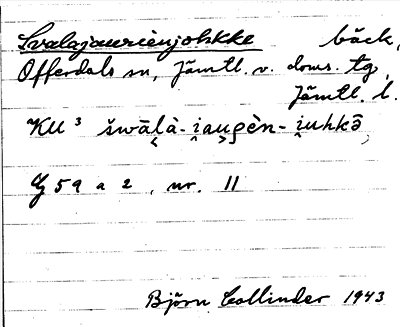 Svalajaurienjohkke bäck,
Offerdals sn, Jämtl. v. doms. tg,
Jämtl. l.
KU³ šwāl̬à-i̯au̯gèn-i̯uhkə̄,
G 59 a 2, nr. 11
Björn Collinder 1943